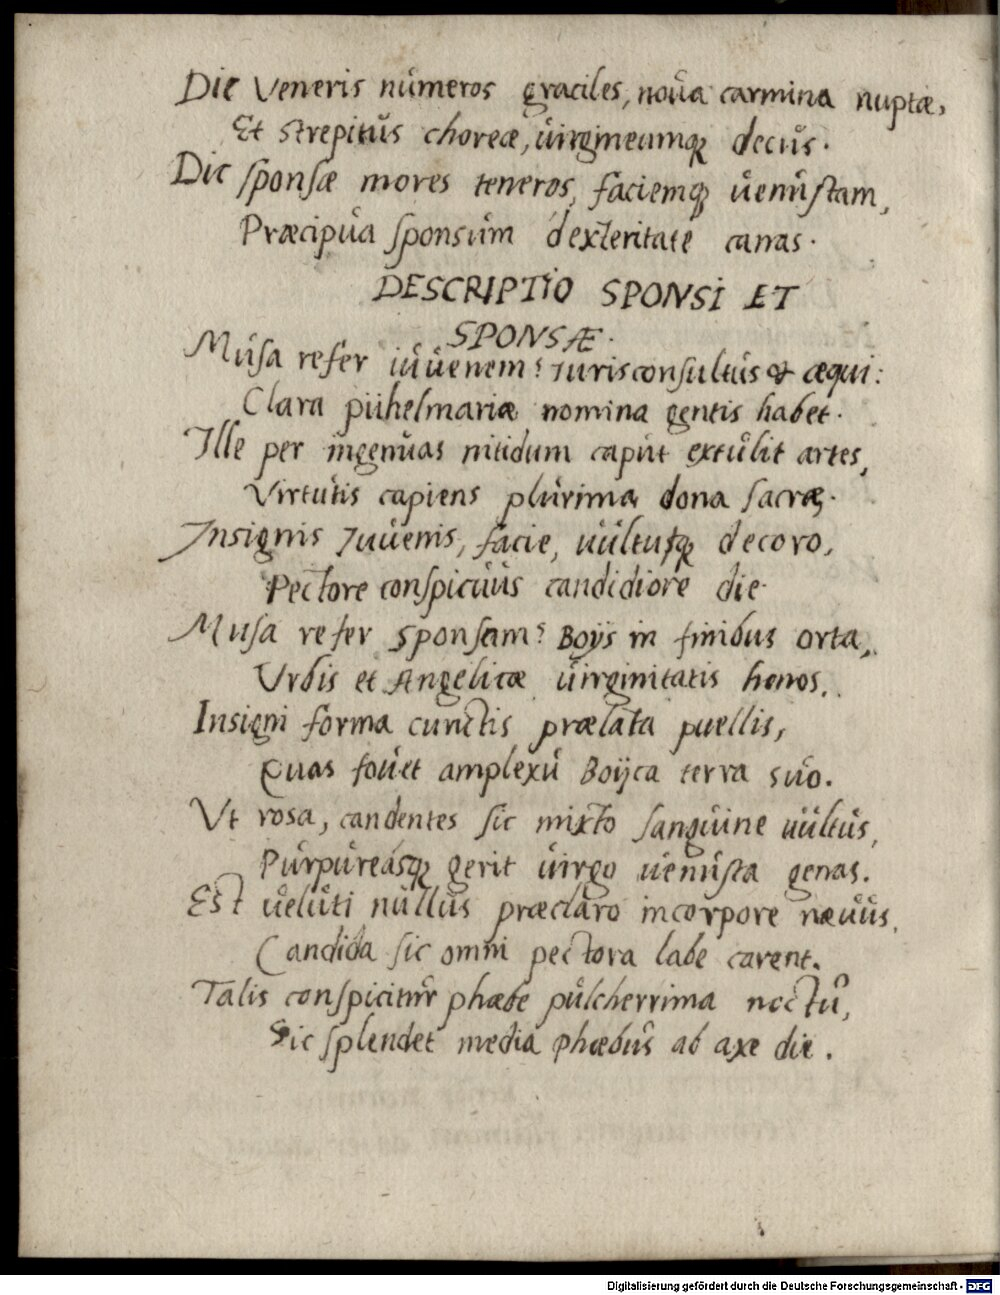 Dic Veneris nůmeros graciles, noůa carmina nuptæ,
Et strepitůs choreæ, ůirgineumqꝫ decůs.
Dic ſponſæ mores teneros, faciemqꝫ ůenůſtam,
Præcipůa ſponsům dexteritate canas.
DESCRIPTIO SPONSI ET
SPONSÆ.
Můſa refer iůůenem? iurisconſultůs & æqui:
Clara piihelmariæ nomina gentis habet.
Ille per ingenůas nitidum capůt extůlit artes,
Virtůtis capiens plůrima dona ſacræ.
Insignis Iuůenis, facie, ůůltuſqꝫ decoro,
Pectore conſpicůůs candidiore die.
Muſa refer Sponſam? Boijs in finibus orta,
Vrbis et Angelicæ ůirginitatis honos.
Insigni forma cunctis prælata puellis,
Quas foůet amplexů Boijca terra sůo.
Vt rosa, candentes ſic mixto ſangůine ůůltůs,
Půrpůreásqꝫ gerit ůirgo ůenůſta genas.
Est ůelůti nůllůs præclaro in corpore næůůs,
Candida ſic omni pectora labe carent.
Talis conſpicitůr phæbe půlcherrima noctů,
Sic ſplendet media phæbůs ab axe die.
Digitalisierung gefördert durch die Deutsche Forschungsgemeinschaft - DFG